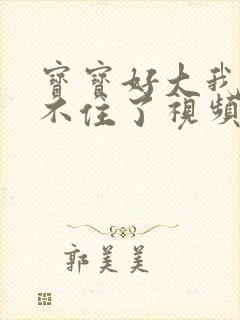 寶寶好大我
不住了視頻
郭美美